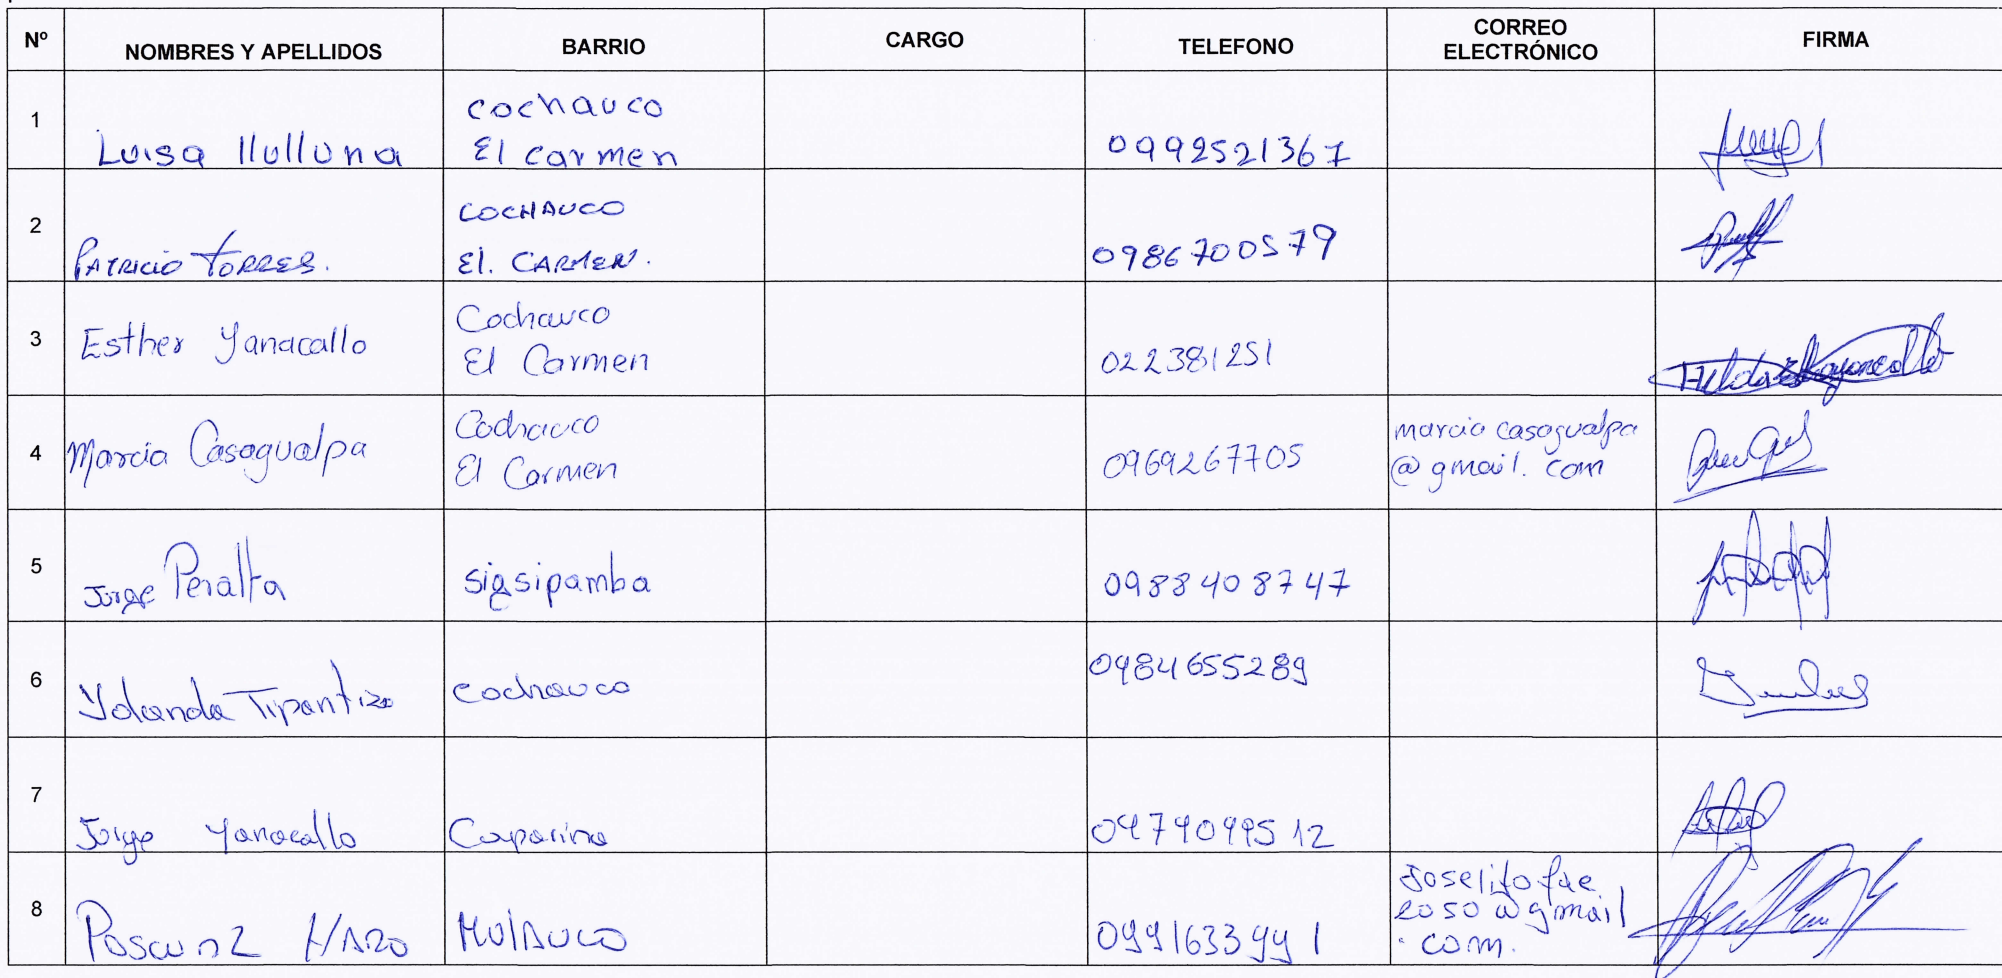 Nº NOMBRES Y APELLIDOS BARRIO CARGO TELEFONO CORREO ELECTRÓNICO FIRMA
1 Luisa llulluna cochauco El carmen 0992521367
2 PATRICIO TORRES. COCHAUCO El. CARMEN. 0986700579
3 Esther Yanacallo Cochauco El Carmen 022381251
4 Marcia Casagualpa Cochauco El Carmen 0969267705 marcia casagualpa @gmail.com
5 Jorge Peralta sigsipamba 0988408747
6 Yolanda Tipantiza cochauco 0984655289
7 Jorge Yanacallo Caparina 0979099512
8 HARO MulAuco 0991633991 Joselitofae 2050@gmail .com.